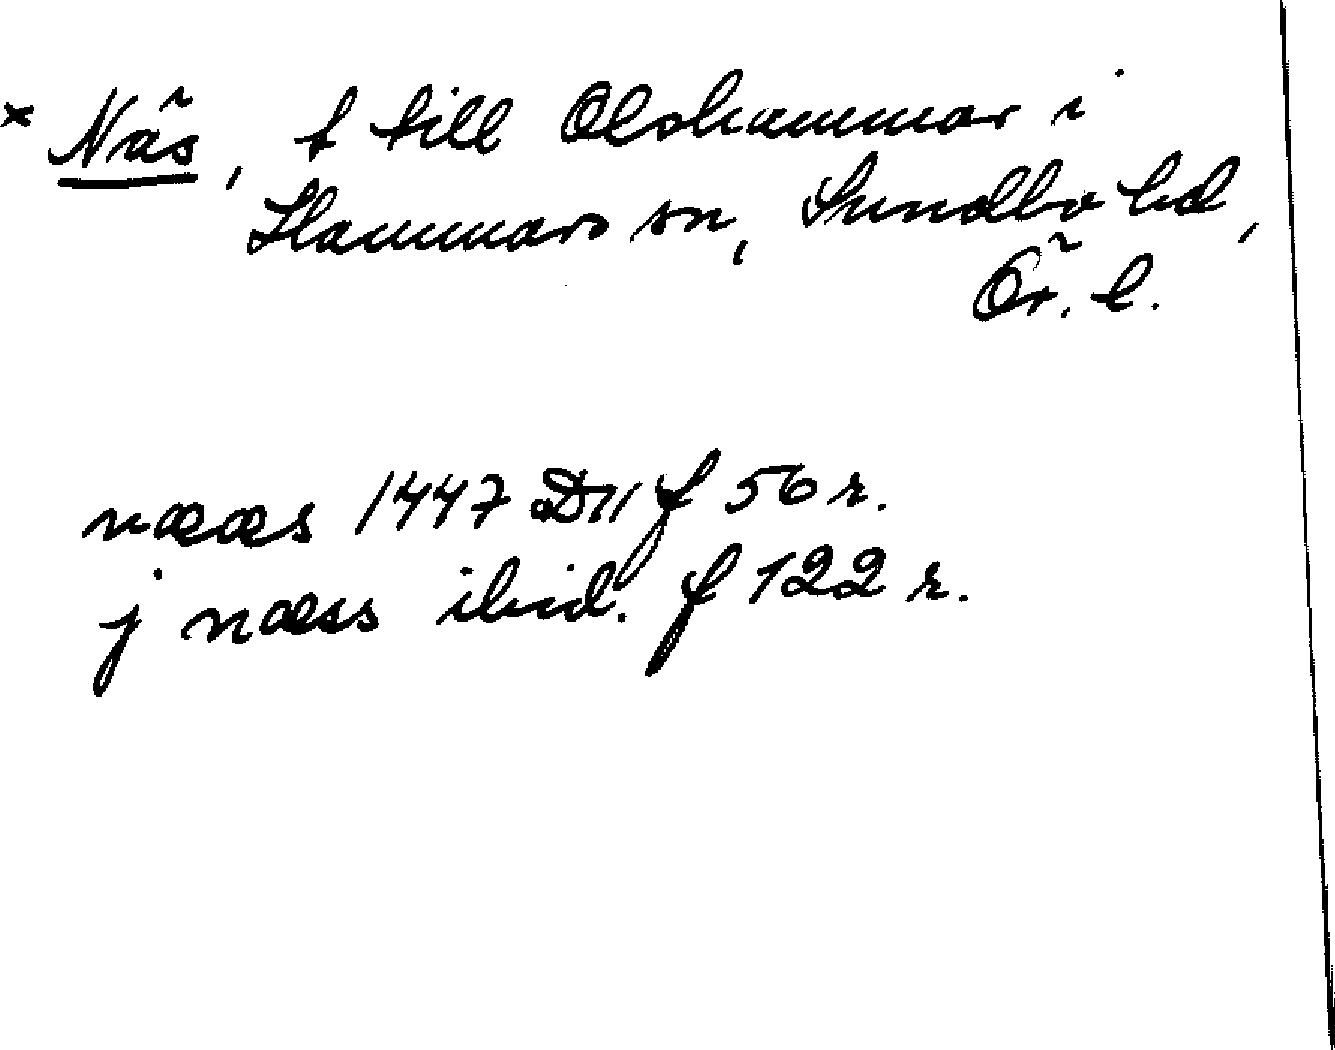 × Näs, t till Olshammar i
Hammars sn, Sundbo hd,
Ör. l.
nææs 1447 D11 f 56 r.
j næss ibid. f 122 r.